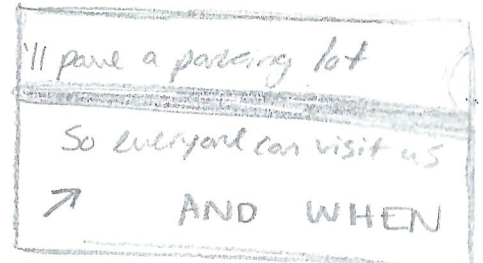 'll pave a parking lot
So everyone can visit us
↗ AND WHEN